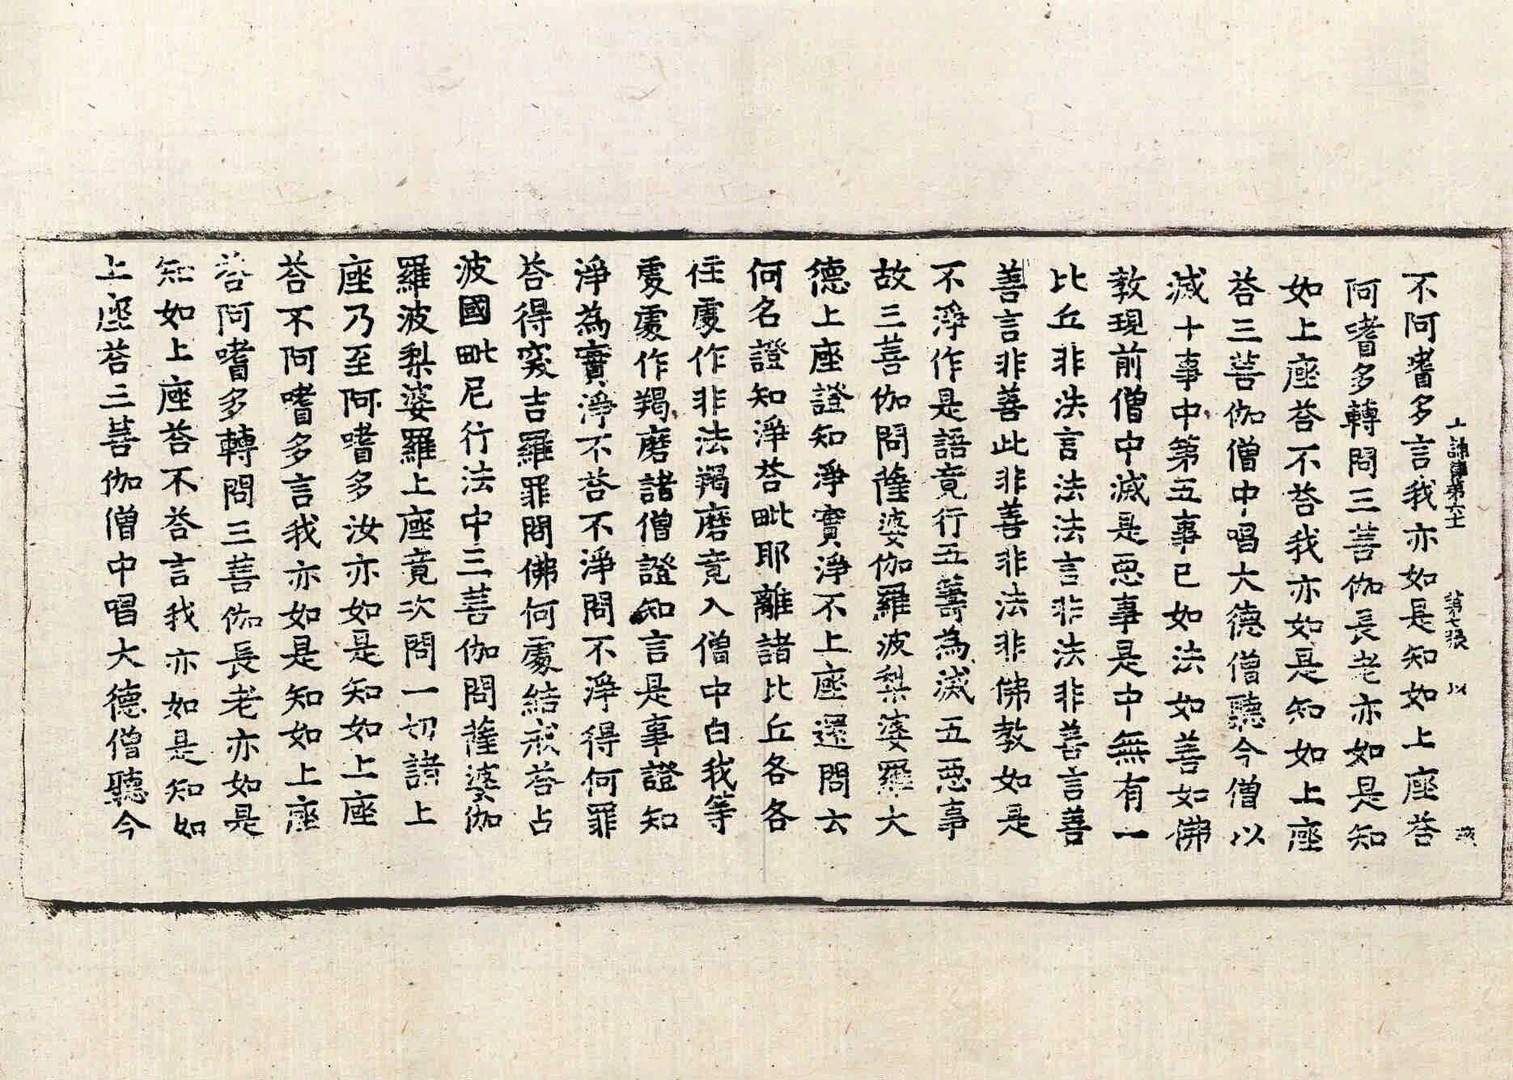 十誦律第六十 第七張 以
不阿嗜多言我亦如是知如上座荅
阿嗜多轉問三菩伽長老亦如是知
如上座荅不荅我亦如是知如上座
荅三菩伽僧中唱大德僧聽今僧以
滅十事中第五事已如法如善如佛
教現前僧中滅是惡事是中無有一
比丘非法言法法言非法非善言善
善言非善此非善非法非佛教如是
不淨作是語竟行五籌為滅五惡事
故三菩伽問薩婆伽羅波梨婆羅大
德上座證知淨實淨不上座還問云
何名證知淨荅毗耶離諸比丘各各
住處作非法羯磨竟入僧中白我等
處處作羯磨諸僧證知言是事證知
淨為實淨不荅不淨問不淨得何罪
荅得突吉羅罪問佛何處結戒荅占
波國毗尼行法中三菩伽問薩婆伽
羅波梨婆羅上座竟次問一切諸上
座乃至阿嗜多汝亦如是知如上座
荅不阿嗜多言我亦如是知如上座
荅阿嗜多轉問三菩伽長老亦如是
知如上座荅不荅言我亦如是知如
上座荅三菩伽僧中唱大德僧聽今